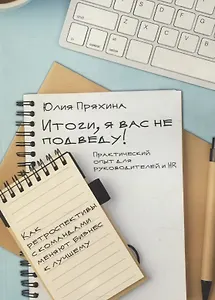 Юлия Пряхина
Итоги, я вас не
подведу!
Практический
опыт для
руководителей и HR
Как
ретроспективы
с командами
меняют бизнес
к лучшему